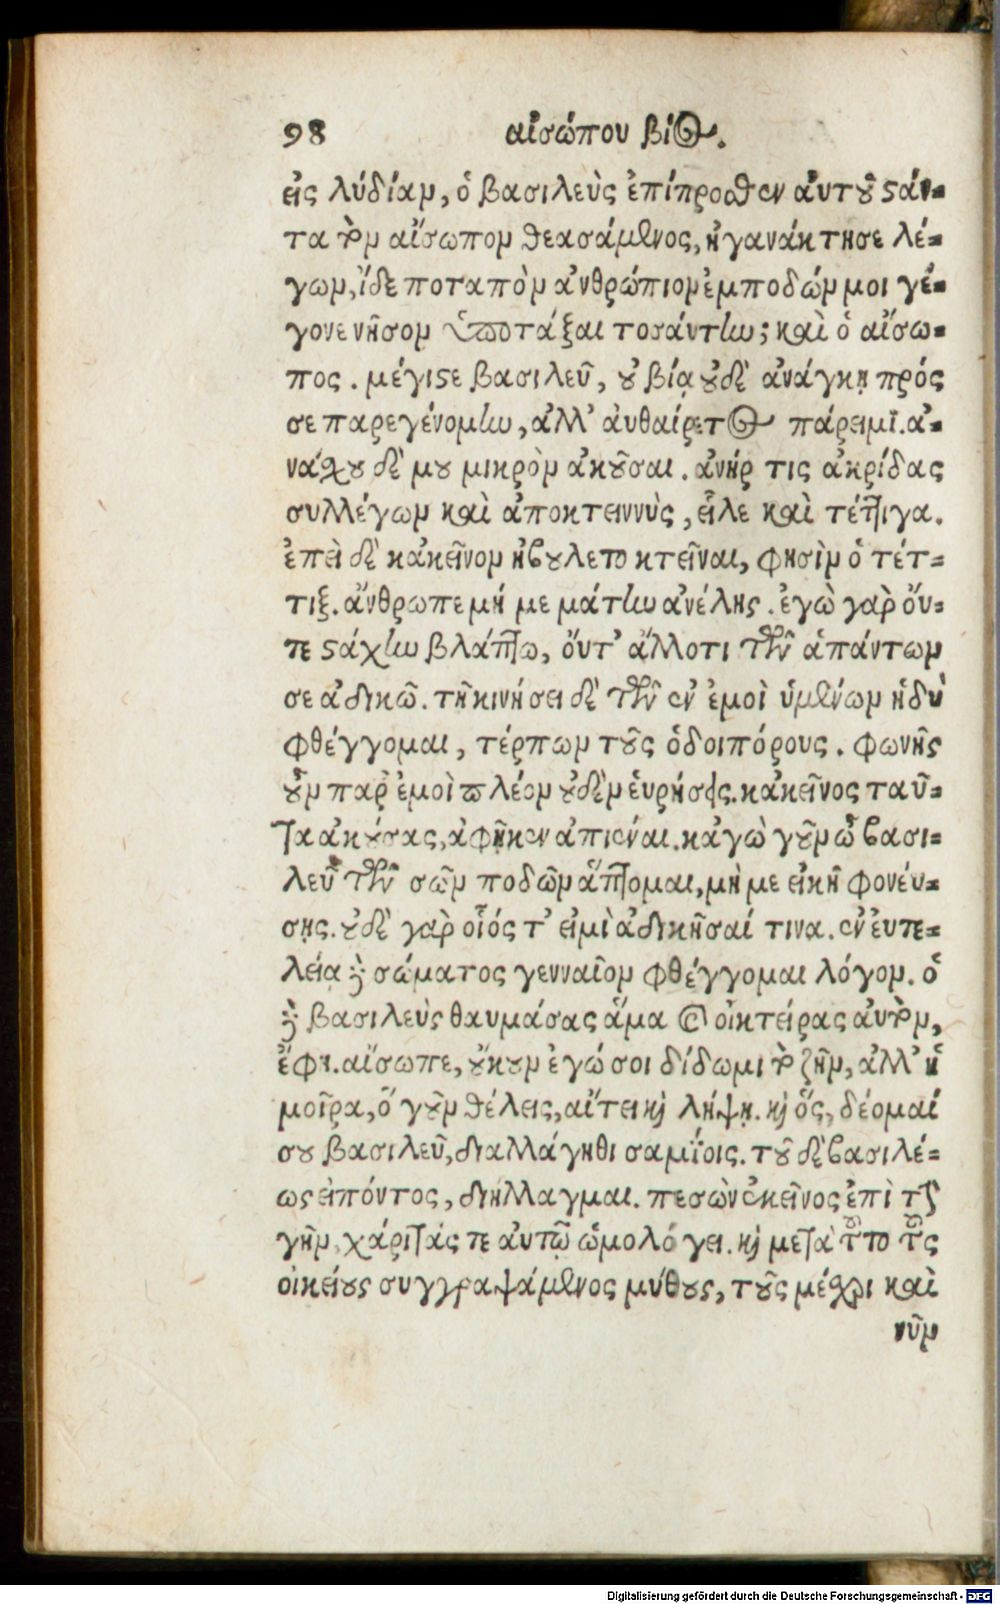 98 αἰσώπου βίος.
εἰς λύδίαν, ὁ βασιλεὺς ἐπίπροσθεν αὐτοῦ στάν-
τα τὸν αἴσωπον θεασάμενος, ἠγανάκτησε λέ-
γων, ἴδε ποταπὸν ἀνθρώπιον ἐμποδών μοι γέ-
γονε νῆσον ὑποτάξαι τοσάντην; καὶ ὁ αἴσω-
πος. μέγιστε βασιλεῦ, οὐ βίᾳ οὐδὲ ἀνάγκῃ πρός
σε παρεγένομην, ἀλλ' ἀυθαίρετος πάρειμι. ἀ-
νάχου δὲ μου μικρὸν ἀκοῦσαι. ἀνήρ τις ἀκρίδας
συλλέγων καὶ ἀποκτειννὺς, εἷλε καὶ τέττιγα.
ἐπεὶ δὲ κἀκεῖνον ἠβουλετο κτεῖναι, φησὶν ὁ τέτ-
τιξ. ἄνθρωπε μή με μάτην ἀνέλῃς. ἐγὼ γαρ ὄυ-
τε στάχην βλάπτω, ὄυτ' ἄλλοτι τῶν ἁπάντων
σε ἀδικῶ. τῇ κινήσει δὲ τῶν ἐν ἐμοὶ ὑμένων ἡδὺ
φθέγγομαι, τέρπων τοῦς ὁδοιπόρους. φωνῆς
οὖν παρ' ἐμοὶ πλέον οὐδὲν ἑυρήσεις. κἀκεῖνος ταῦ-
τα ἀκούσας, ἀφῆκεν ἀπιέναι. κἀγὼ γοῦν ὦ βασι-
λεῦ τῶν σῶν ποδῶν ἅπτομαι, μὴ με εἰκῆ φονέυ-
σῃς. οὐδὲ γαρ οἷός τ' εἰμὶ ἀδικῆσαί τινα. ἐν ἐυτε-
λείᾳ δὲ σώματος γενναῖον φθέγγομαι λόγον. ὁ
δὲ βασιλεὺς θαυμάσας ἅμα καὶ οἰκτείρας ἀυτὸν,
ἔφη. αἴσωπε, οὔκουν ἐγώ σοι δίδωμι τὸ ζῆν, ἀλλ' ἡ
μοῖρα, ὃ γοῦν θέλεις, αἴτει καὶ λήψῃ. καὶ ὅς, δέομαί
σου βασιλεῦ, διαλλάγηθι σαμΐοις. τοῦ δὲ βασιλέ-
ως εἰπόντος, διήλλαγμαι. πεσὼν ἐκεῖνος ἐπὶ τὴν
γῆν, χάριτάς τε ἀυτῷ ὡμολόγει. καὶ μετὰ τοῦτο τοὺς
οἰκείους συγγραψάμενος μύθους, τοῦς μέχρι καὶ
νῦν
Digitalisierung gefördert durch die Deutsche Forschungsgemeinschaft - DFG